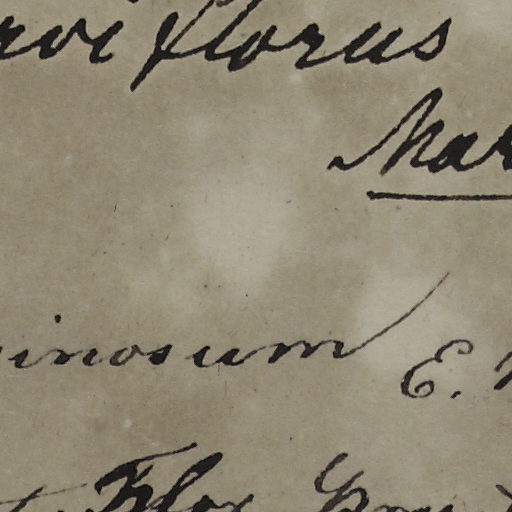 rviflorus
Mar
inosum E.
Flor